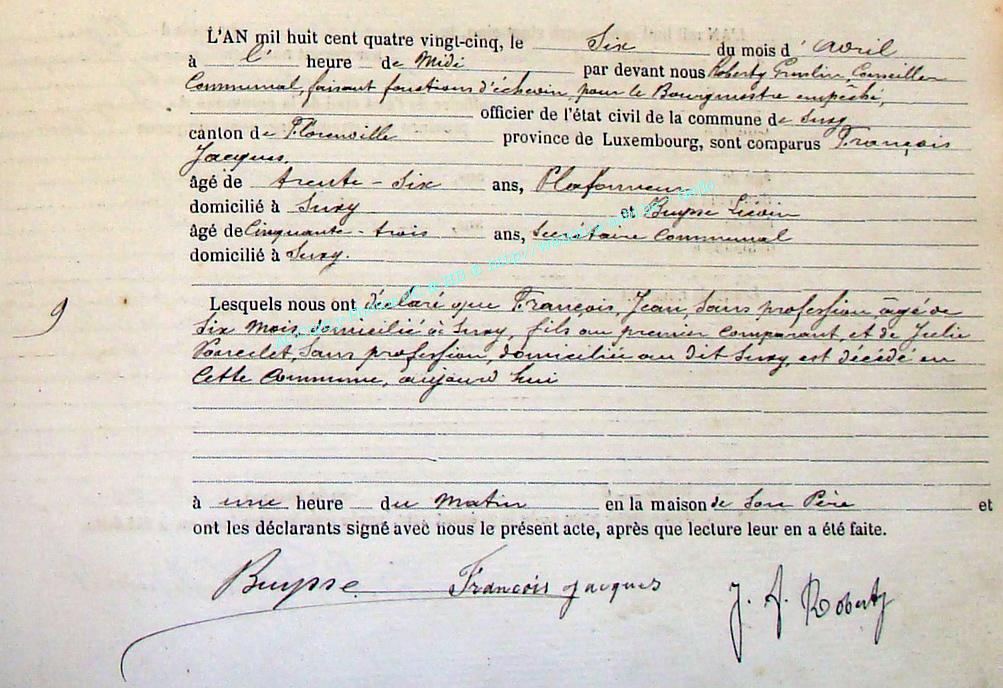 L'AN mil huit cent quatre vingt-cinq, le Six du mois d' avril
à l' heure de Midi par devant nous Roberty Conseiller
Communal, faisant fonctions d'échevin, pour le Bourgmestre empêché,
officier de l'état civil de la commune de Suxy
canton de Florenville province de Luxembourg, sont comparus François
Jacques.
âgé de trente-Six ans, Plafonneur
domicilié à Suxy et Buysse Liévin
âgé de Cinquante-trois ans, Secrétaire Communal
domicilié à Suxy.
Lesquels nous ont déclaré que François, Jean, Sans profession âgé de
9
Six mois, domicilié à Suxy, fils au premier comparant, et de Julie
Sans profession, domiciliée au dit Suxy, est décédé en
Cette Commune, aujourd'hui
à une heure du Matin en la maison de Son Père et
ont les déclarants signé avec nous le présent acte, après que lecture leur en a été faite.
Buysse François Jacques J. J. Roberty